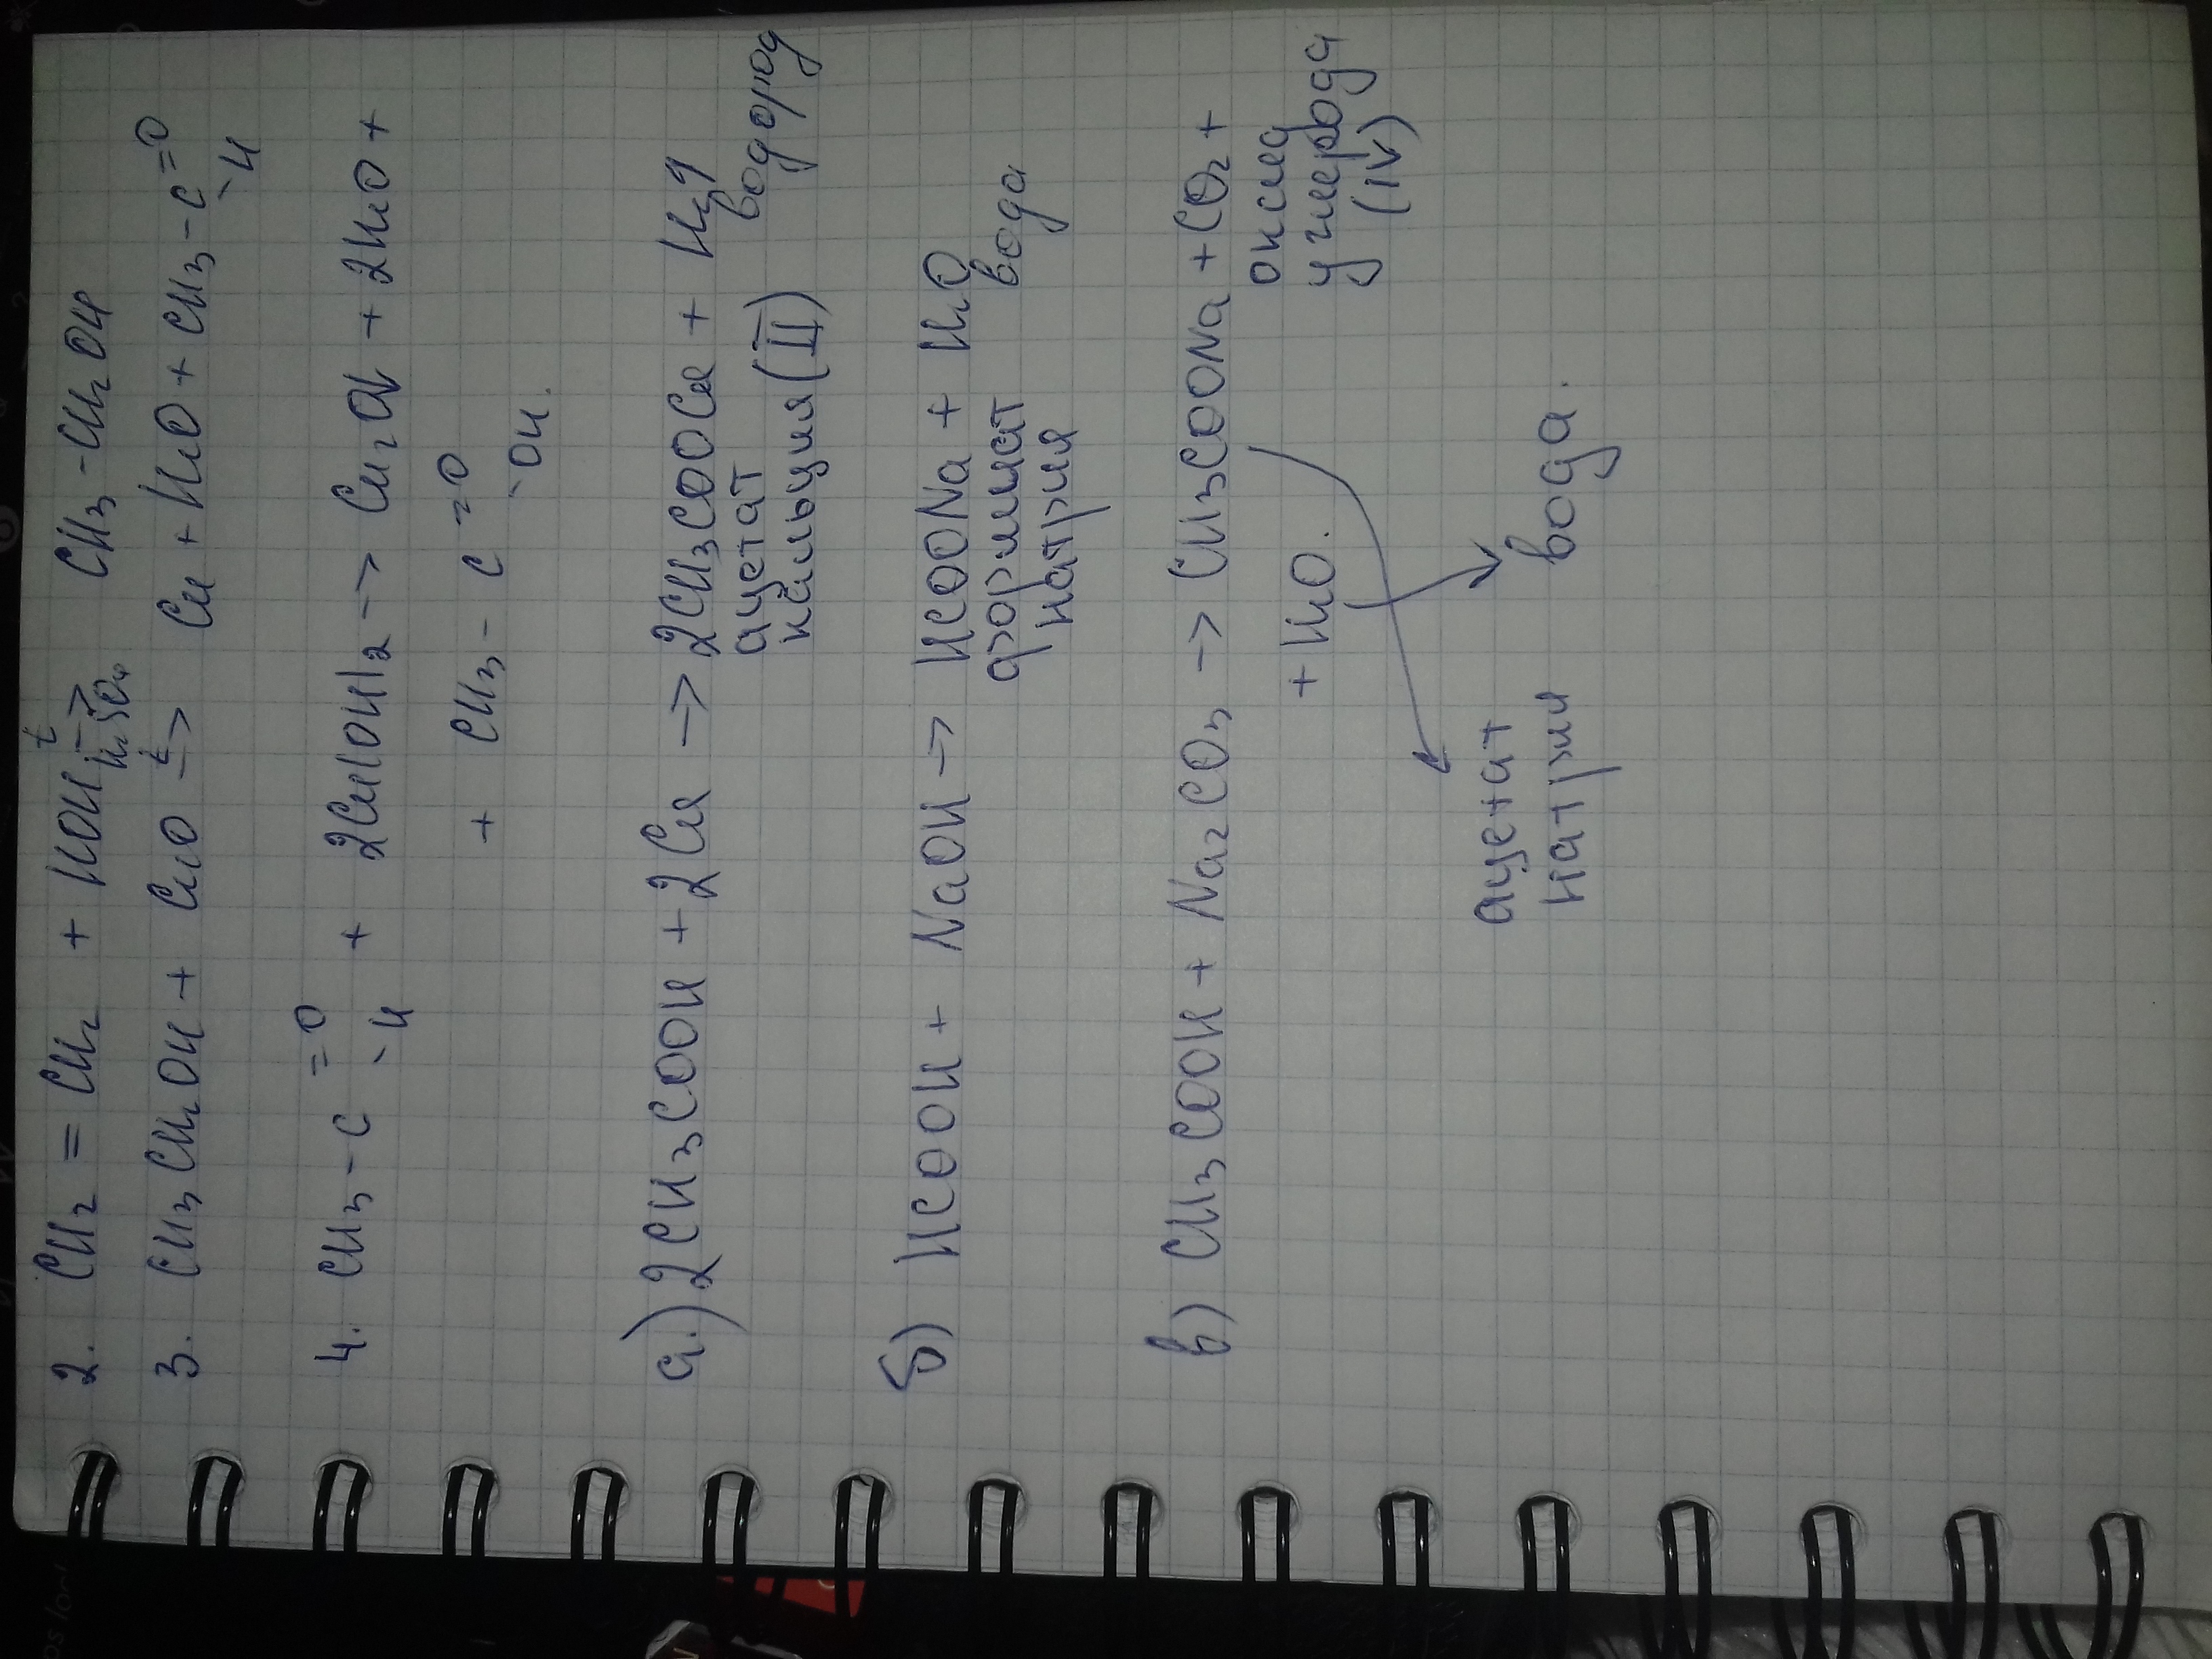 2. CH₂ = CH₂ + HOH t→ H₂SO₄ CH₃-CH₂OH
3. CH₃CH₂OH + CuO t→ Cu + H₂O + CH₃-C =O -H
4. CH₃-C =O -H + 2Cu(OH)₂ → Cu₂O↓ + 2H₂O +
+ CH₃-C =O -OH.
а.) 2CH₃COOH + 2Ca → 2CH₃COOCa + H₂↑
ацетат водород
кальция (II)
б) HCOOH + NaOH → HCOONa + H₂O
формиат вода
натрия
в) CH₃COOH + Na₂CO₃ → CH₃COONa + CO₂ +
+ H₂O. оксид
углерода
(IV)
ацетат вода.
натрия